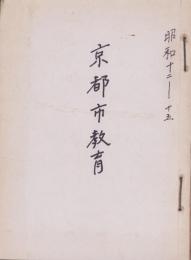 昭和十二—十五
京都市教育